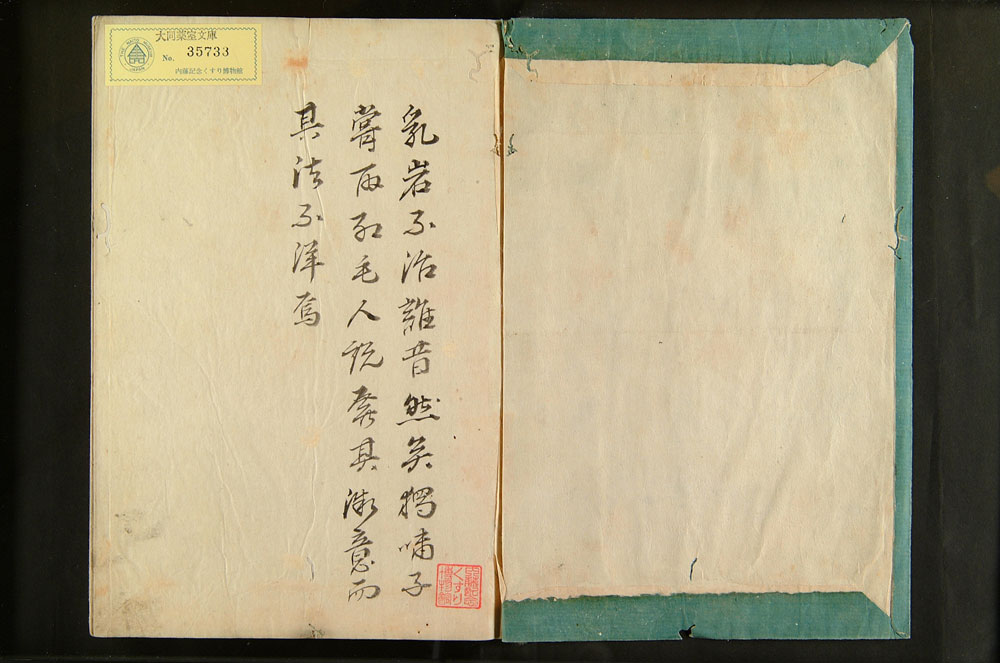 大同薬室文庫
No. 35733
内藤記念くすり博物館
乳岩不治雖昔然矣獨嘯子
嘗取紅毛人說發其微意而
具法不詳焉
内藤記念
くすり
博物館